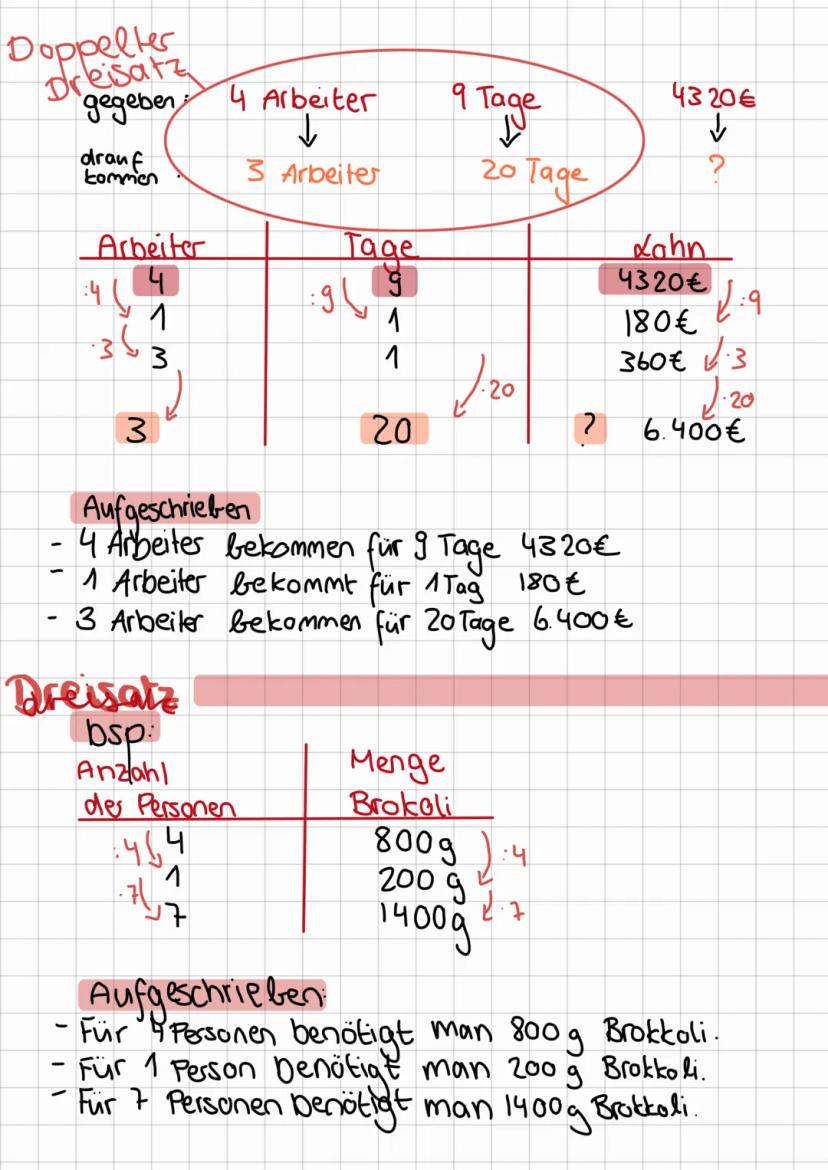 Doppelter
Dreisatz
gegeben: 4 Arbeiter 9 Tage 4320€
drauf kommen : 3 Arbeiter 20 Tage ?
Arbeiter Tage Lohn
:4 4 :9 9 4320€ :9
1 1 180€
·3 3 1 360€ ·3
·20 ·20
3 20 ? 6.400€
Aufgeschrieben
- 4 Arbeiter bekommen für 9 Tage 4320€
- 1 Arbeiter bekommt für 1 Tag 180€
- 3 Arbeiter bekommen für 20 Tage 6.400€
Dreisatz
bsp:
Anzahl Menge
der Personen Brokoli
:4 4 800g :4
1 200 g
·7 7 1400g ·7
Aufgeschrieben:
- Für 4 Personen benötigt man 800g Brokkoli.
- Für 1 Person benötigt man 200g Brokkoli.
- Für 7 Personen benötigt man 1400g Brokkoli.